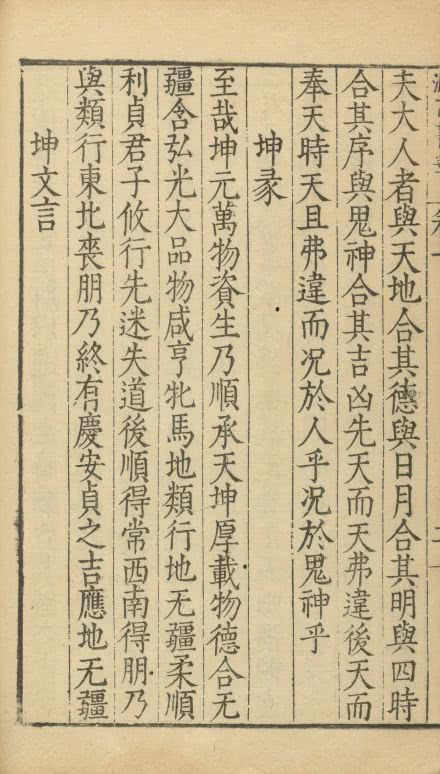 夫大人者與天地合其德與日月合其明與四時
合其序與鬼神合其吉凶先天而天弗違後天而
奉天時天且弗違而况於人乎况於鬼神乎
坤彖
至哉坤元萬物資生乃順承天坤厚載物德合无
疆含弘光大品物咸亨牝馬地類行地无疆柔順
利貞君子攸行先迷失道後順得常西南得朋乃
與類行東北喪朋乃終有慶安貞之吉應地无疆
坤文言